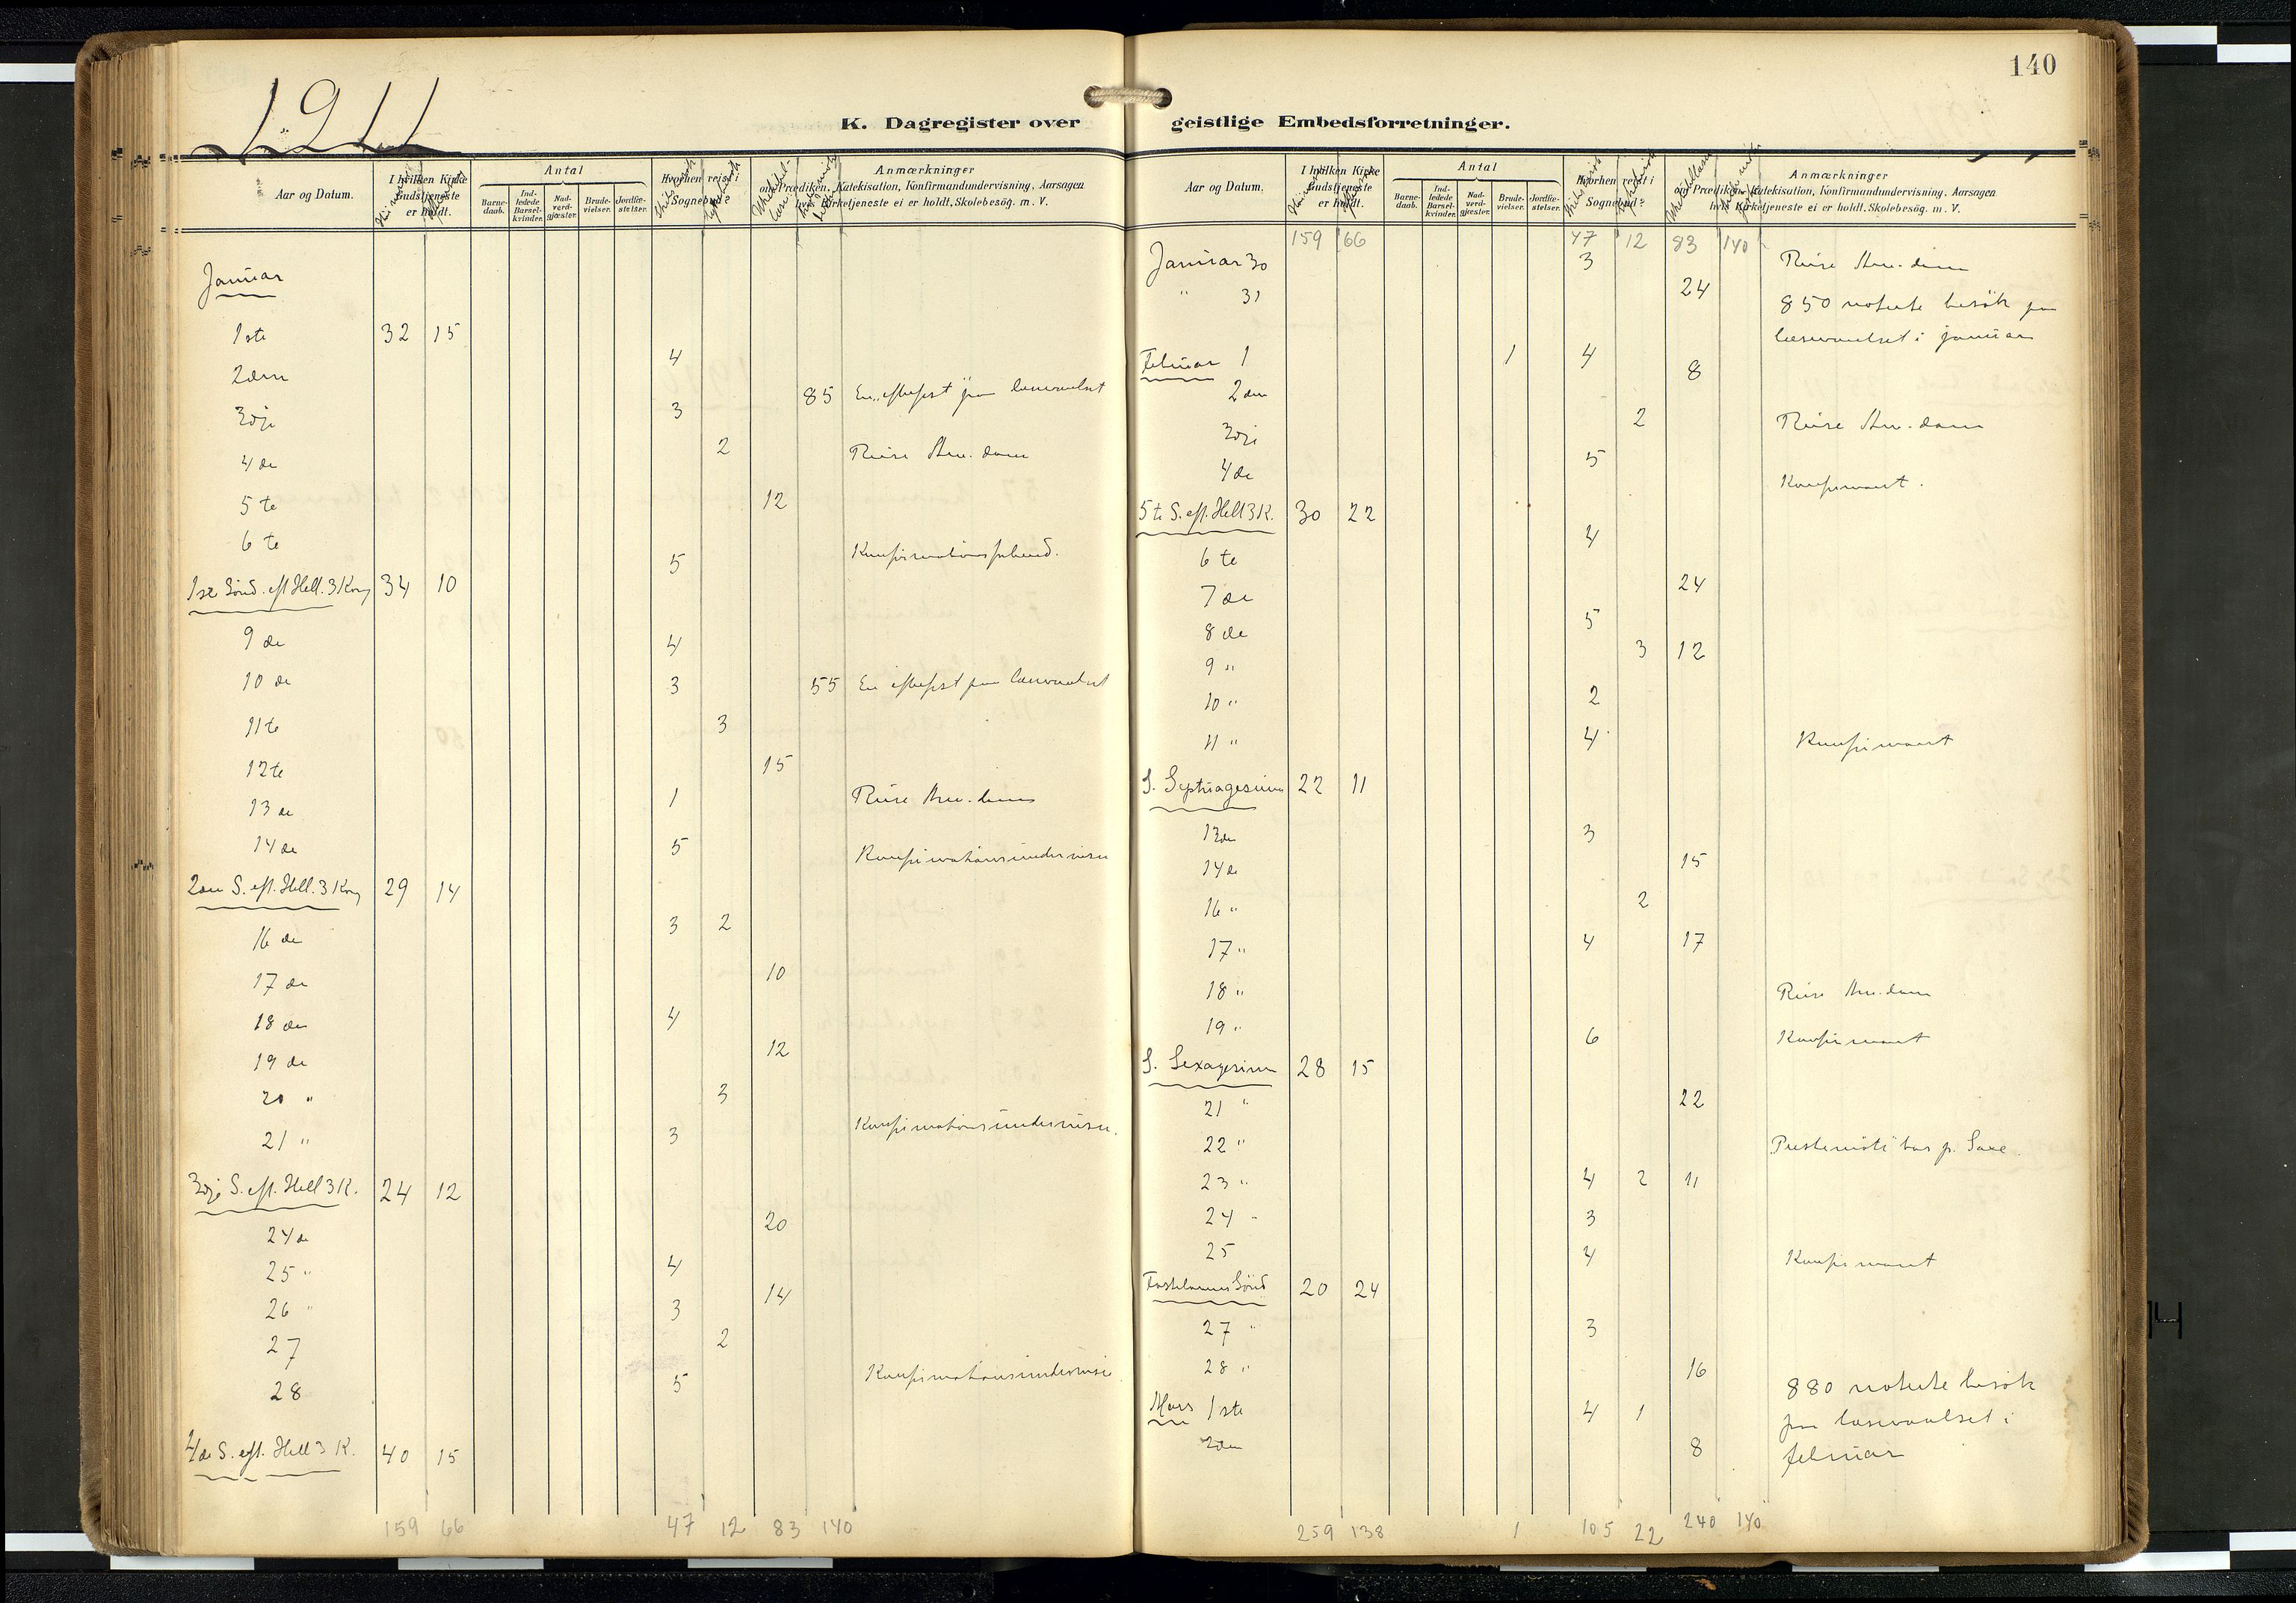 1911
140
K. Dagregister over geistlige Embedsforretninger.
Aar og Datum.
I hvilken Kirke Gudstjeneste er holdt.
Antal
Barne-daab.
Ind-ledede Barsel-kvinder.
Nad-verd-gjæster.
Brude-vielser.
Jordfæ-stelser.
Hvorhen reist i Sognebud?
Anmærkninger
om Prædiken, Katekisation, Konfirmandundervisning, Aarsagen
hvis Kirketjeneste ei er holdt. Skolebesög. m. V.
Januar
1ste 32 15
4
2den
85 En "eftefest" paa læsevaelset
3dje 3
2 Reise Am.dam
4de
5te 12
6te
5 Konfirmationsforbered.
1ste Sönd. eft Hell. 3 Kong 34 10
9de 4
10de 3 55 En eftefest paa læsevaelset
11te 3
12te 15
13de 1 Reise Am.dam
14de 5 Konfirmationsundervisn
2den S. eft. Hell. 3 Kong 29 14
16de 3 2
17de 10
18de 4
19de 12
20 " 3
21 " 3 Konfirmationsundervisn.
3dje S. eft. Hell 3 K. 24 12
24de 20
25 " 4
26 " 3 14
27 2
28 5 Konfirmationsundervisn
4de S. eft. Hell 3 K. 40 15
159 66 47 12 83 140
Aar og Datum.
I hvilken Kirke Gudstjeneste er holdt.
Antal
Barne-daab.
Ind-ledede Barsel-kvinder.
Nad-verd-gjæster.
Brude-vielser.
Jordfæ-stelser.
Hvorhen rest i Sognebud?
Anmærkninger
om Prædiken, Katekisation, Konfirmandundervisning. Aarsagen
hvis Kirketjeneste ei er holdt. Skolebesög. m. V.
159 66 47 12 83 140
Januar 30 3 Reise Am.dam
" 31 24 850 noterte besök paa
læsevaelset i januar
Februar 1 1 4
8
2den
2 Reise Am.dam
3dje
4de 5 Konfirmant.
5te S. eft. Hell 3 K. 30 22
4
6te
7de 24
8de 5
9 " 3 12
10 " 2
11 " 4 Konfirmant
S. Septuagesima 22 11
13de 3
14de 15
16 " 2
17 " 4 17
18 " Reise Am.dam
19 " 6 Konfirmant
S. Sexagesima 28 15
21 " 22
22 " Prestemöte
23 " 4 2 11
24 " 3
25 4 Konfirmant
Fastelavns Sönd 20 24
27 " 3
28 " 16 880 noterte besök
Mars 1ste 4 1 paa læsevaelset i
2den 8 februar
259 138 1 105 22 240 140